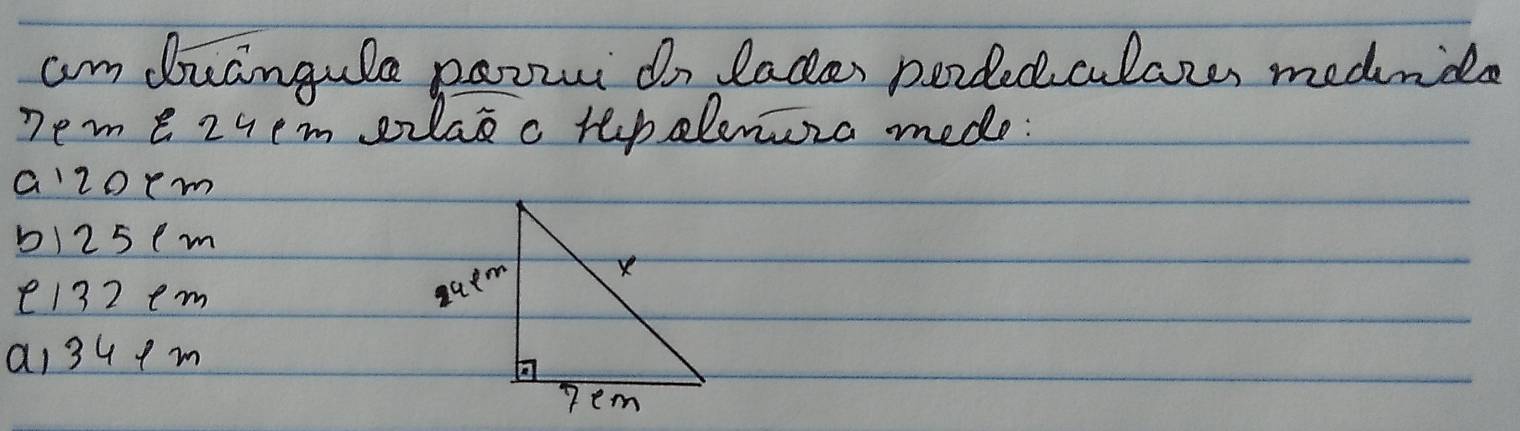 um triângulo possui os lados perdediculares medindo
7cm e 24cm então a Hipotenusa mede:
a) 20 cm
b) 25 cm
c) 32 cm
d) 34 cm
24cm
x
7cm